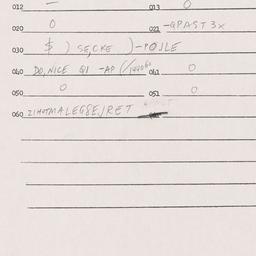 012 — 013 0
020 0 021 -QPAST 3X
030 $ ) SE,CKE )-POJLE
040 DO,NICE QI -AP 041 0
050 0 051 0
060 21HOTMALEGSE,RET